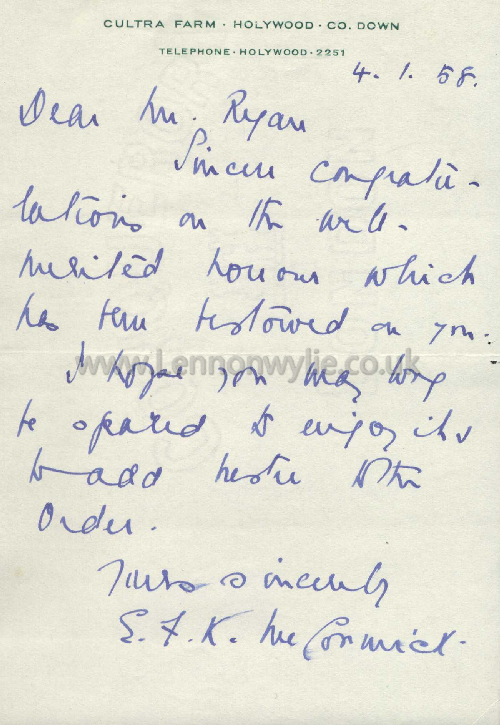 CULTRA FARM · HOLYWOOD · CO. DOWN
TELEPHONE · HOLYWOOD · 2251
4. 1. 58.
Dear Mr. Ryan
Sincere congratu-
lations on the well-
merited honour which
has been bestowed on you.
www.Lennonwylie.co.uk
I hope you may long
be spared to enjoy it &
to add lustre to the
Order.
Yours sincerely
E. F. K. McCormick.